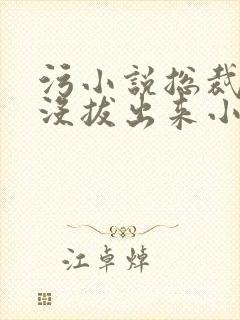 污小说总裁
没拔出来小
江卓焯